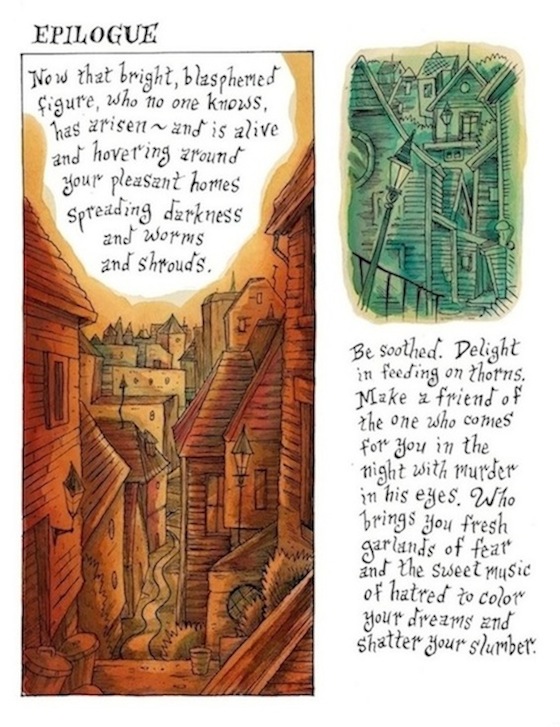 EPILOGUE
Now that bright, blasphemed
figure, who no one knows,
has arisen~and is alive
and hovering around
your pleasant homes
spreading darkness
and worms
and shrouds.
Be soothed. Delight
in feeding on thorns.
Make a friend of
the one who comes
for you in the
night with murder
in his eyes. Who
brings you fresh
garlands of fear
and the sweet music
of hatred to color
your dreams and
shatter your slumber.